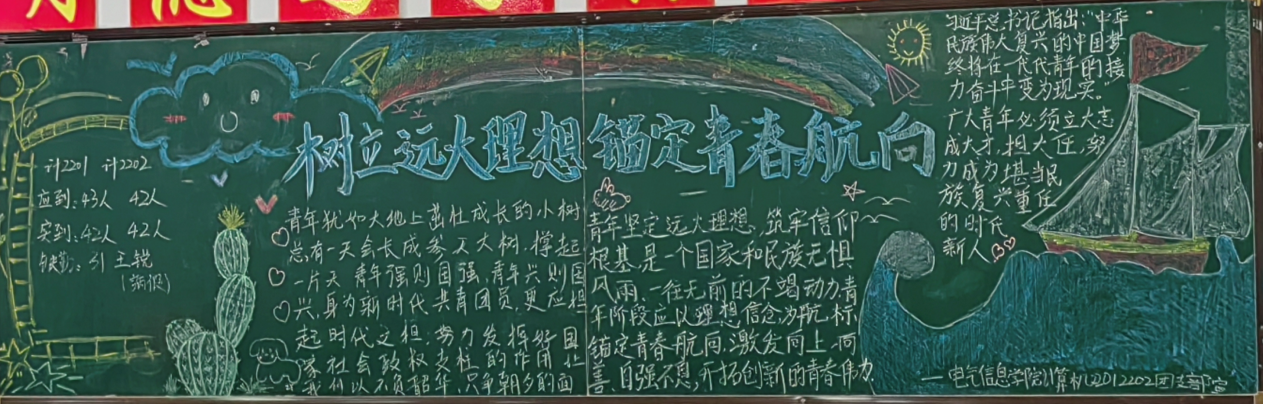 计2201 计2202
应到:43人 42人
实到:42人 42人
缺勤:1 王锐
(病假)
树立远大理想 锚定青春航向
青年犹如大地上茁壮成长的小树
总有一天会长成参天大树,撑起
一片天 青年强则国强,青年兴则国
兴,身为新时代共青团员,更应担
起时代之担,努力发挥好国
家社会政权支柱的作用 让
我们以不负韶华,只争朝夕的面
青年坚定远大理想、筑牢信仰
根基,是一个国家和民族无惧
风雨、一往无前的不竭动力,青
年阶段应以理想信念为航标,
锚定青春航向,激发向上、向
善、自强不息,开拓创新的青春伟力
习近平总书记指出:“中华
民族伟大复兴的中国梦
终将在一代代青年的接
力奋斗中变为现实。”
广大青年必须立大志
成大才,担大任,努
力成为堪当民
族复兴重任
的时代
新人
——电气信息学院计算机2201 2202团支部宣